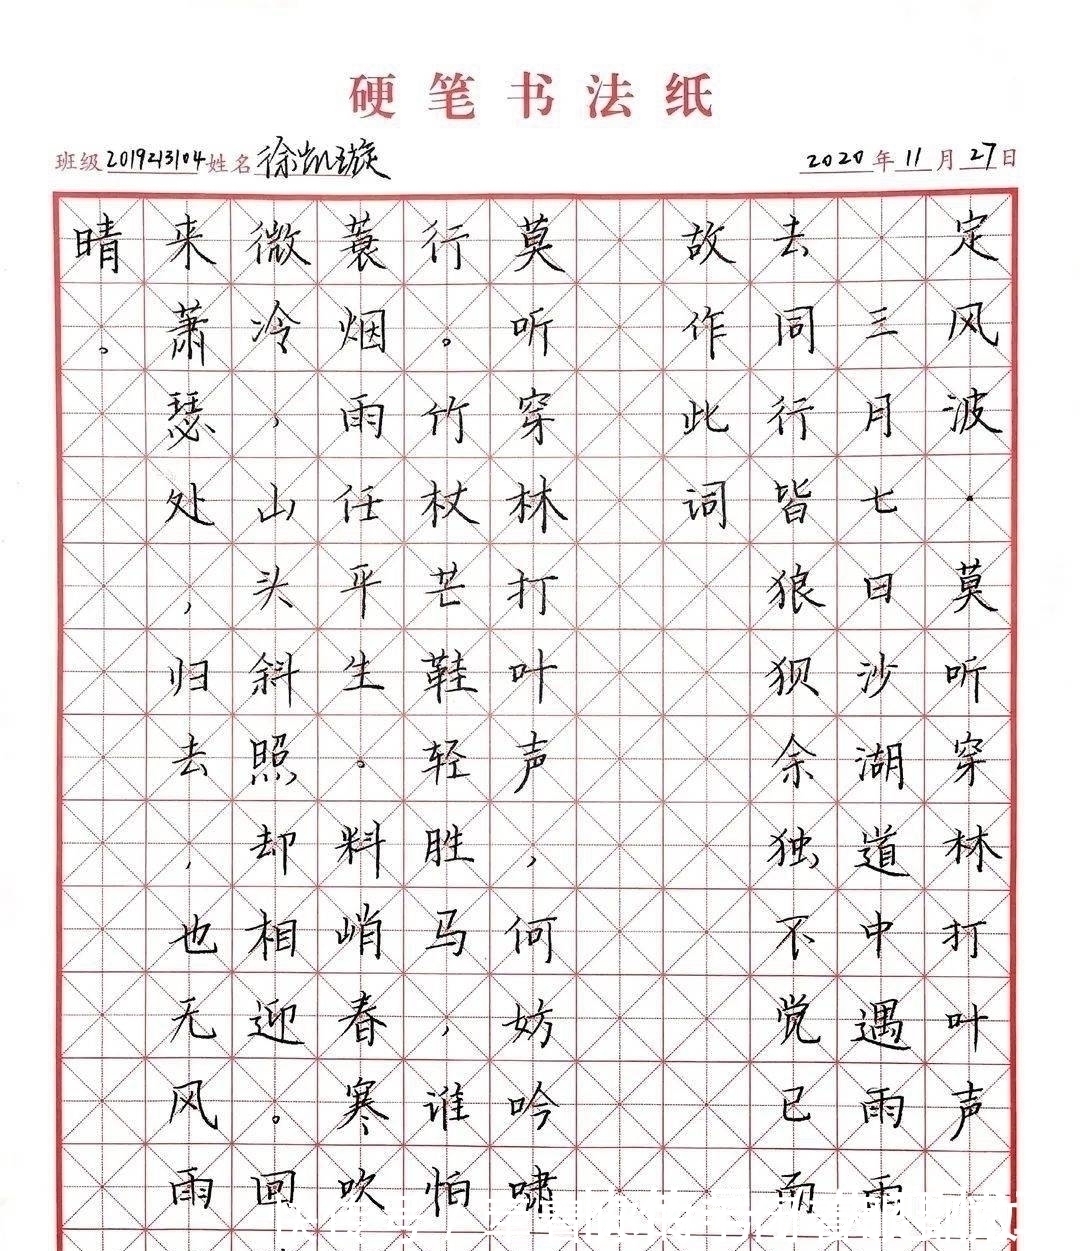 硬笔书法纸
班级 2019213104 姓名 徐凯璇 2020年11月27日
定风波·莫听穿林打叶声
三月七日沙湖道中遇雨雨
去同行皆狼狈余独不觉已
故作此词
莫听穿林打叶声,何妨吟啸
行。竹杖芒鞋轻胜马,谁怕
蓑烟雨任平生。料峭春寒吹
微冷,山头斜照却相迎。回
来萧瑟处,归去,也无风雨
晴。